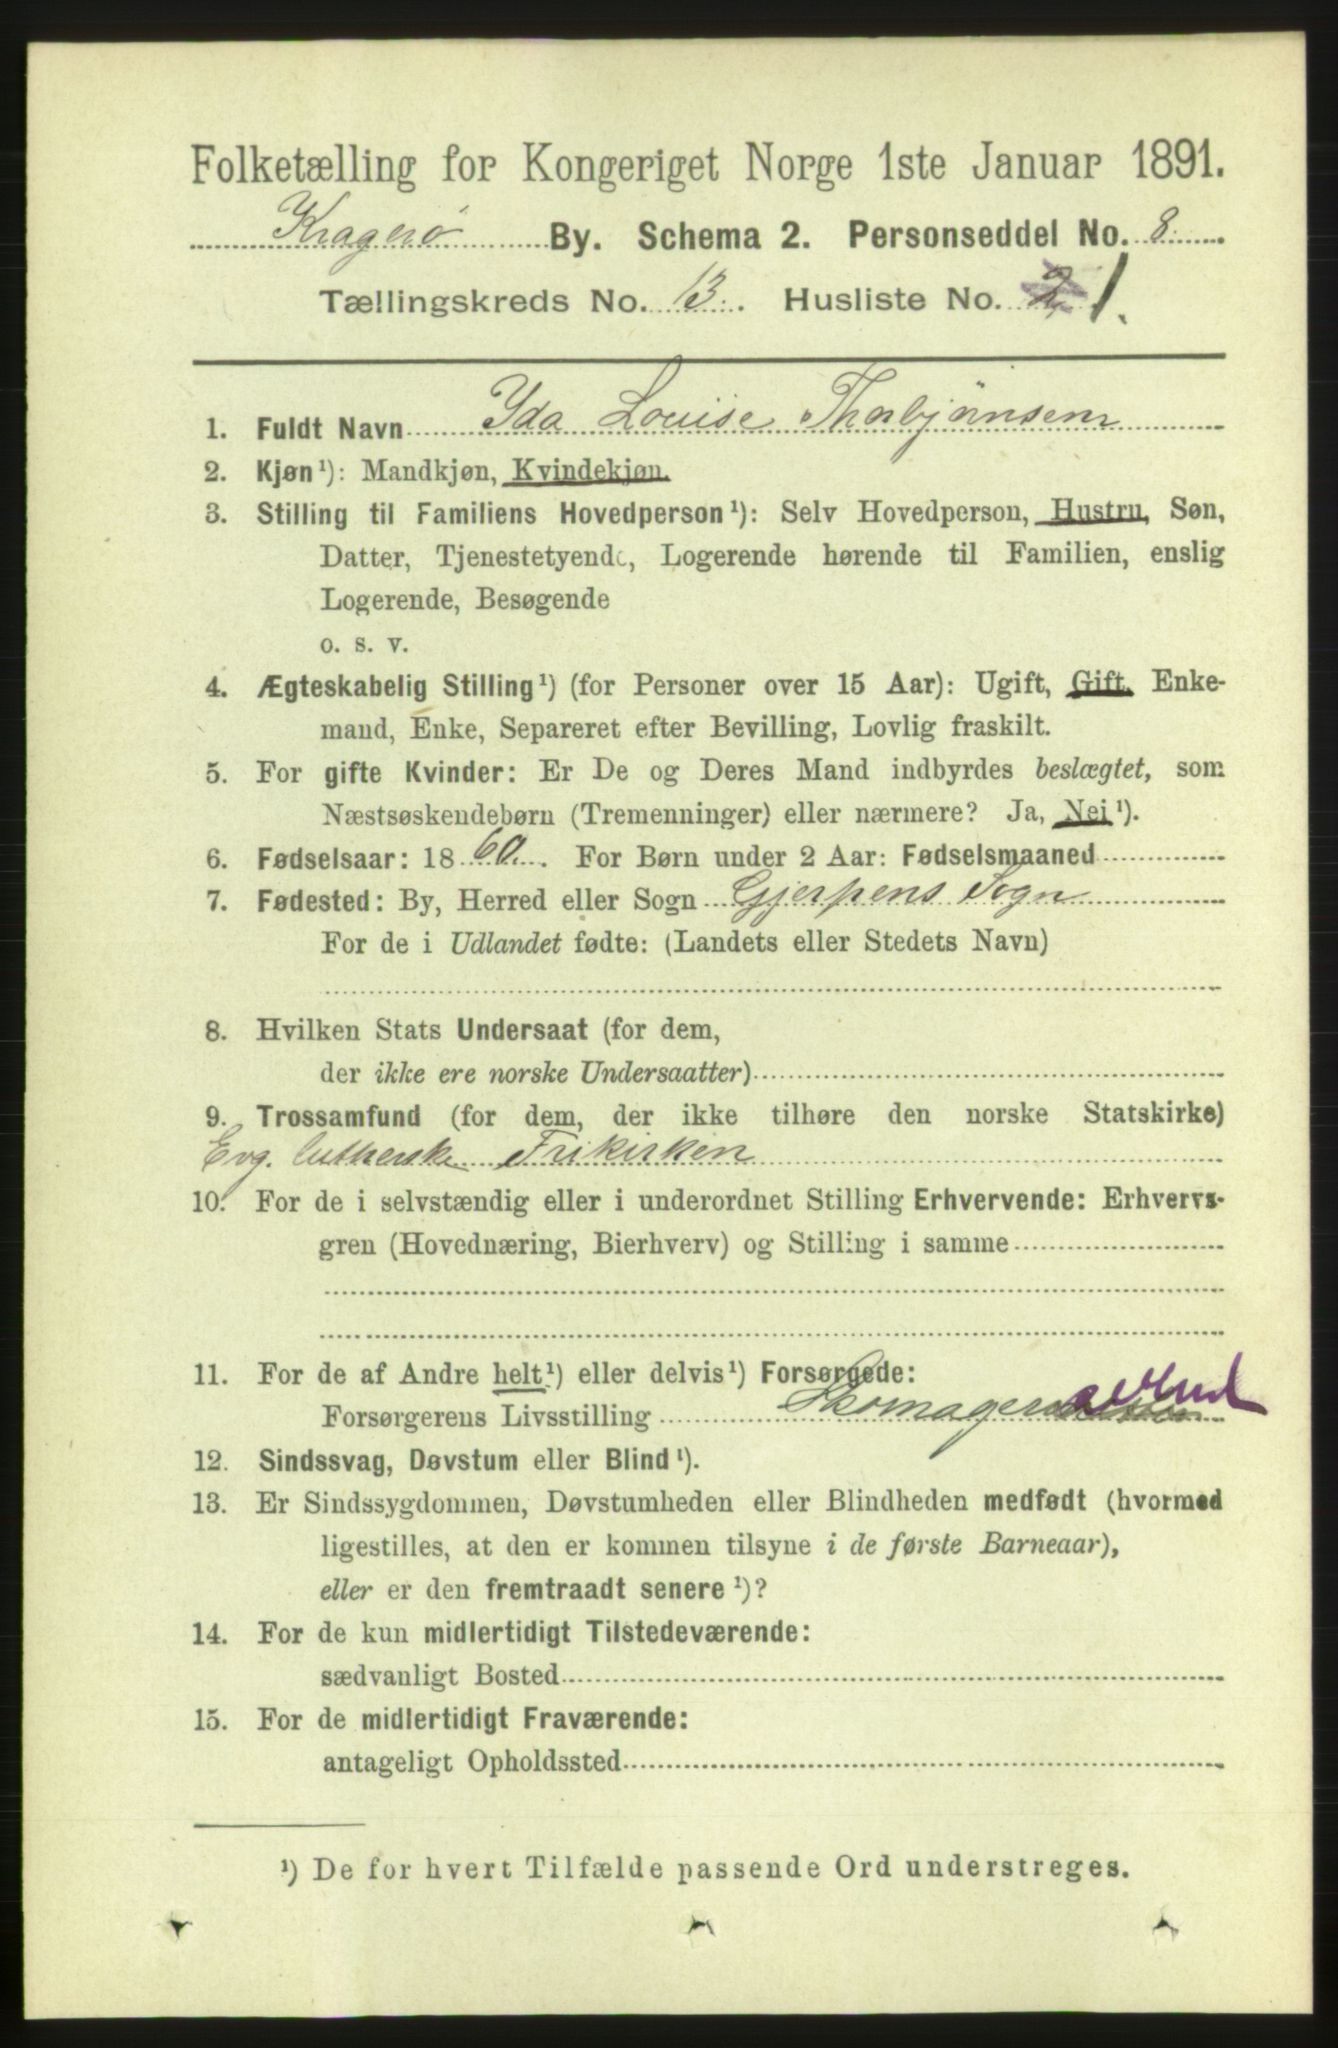 Folketælling for Kongeriget Norge 1ste Januar 1891.
Kragerø By. Schema 2. Personseddel No. 8
Tællingskreds No. 13. Husliste No. 2 1.
1. Fuldt Navn Yda Louise Thorbjörnsen
2. Kjøn¹): Mandkjøn, Kvindekjøn.
3. Stilling til Familiens Hovedperson¹): Selv Hovedperson, Hustru, Søn,
Datter, Tjenestetyende, Logerende hørende til Familien, enslig
Logerende, Besøgende
o. s. v.
4. Ægteskabelig Stilling¹) (for Personer over 15 Aar): Ugift, Gift, Enke-
mand, Enke, Separeret efter Bevilling, Lovlig fraskilt.
5. For gifte Kvinder: Er De og Deres Mand indbyrdes beslægtet, som
Næstsøskendebørn (Tremenninger) eller nærmere? Ja, Nei¹).
6. Fødselsaar: 1860. For Børn under 2 Aar: Fødselsmaaned
7. Fødested: By, Herred eller Sogn Gjerpens Sogn
For de i Udlandet fødte: (Landets eller Stedets Navn)
8. Hvilken Stats Undersaat (for dem,
der ikke ere norske Undersaatter)
9. Trossamfund (for dem, der ikke tilhøre den norske Statskirke)
Evg. lutherske Frikirken
10. For de i selvstændig eller i underordnet Stilling Erhvervende: Erhvervs-
gren (Hovednæring, Bierhverv) og Stilling i samme
11. For de af Andre helt¹) eller delvis¹) Forsørgede:
Forsørgerens Livsstilling Skomager
12. Sindssvag, Døvstum eller Blind¹).
13. Er Sindssygdommen, Døvstumheden eller Blindheden medfødt (hvormed
ligestilles, at den er kommen tilsyne i de første Barneaar),
eller er den fremtraadt senere¹)?
14. For de kun midlertidigt Tilstedeværende:
sædvanligt Bosted
15. For de midlertidigt Fraværende:
antageligt Opholdssted
¹) De for hvert Tilfælde passende Ord understreges.